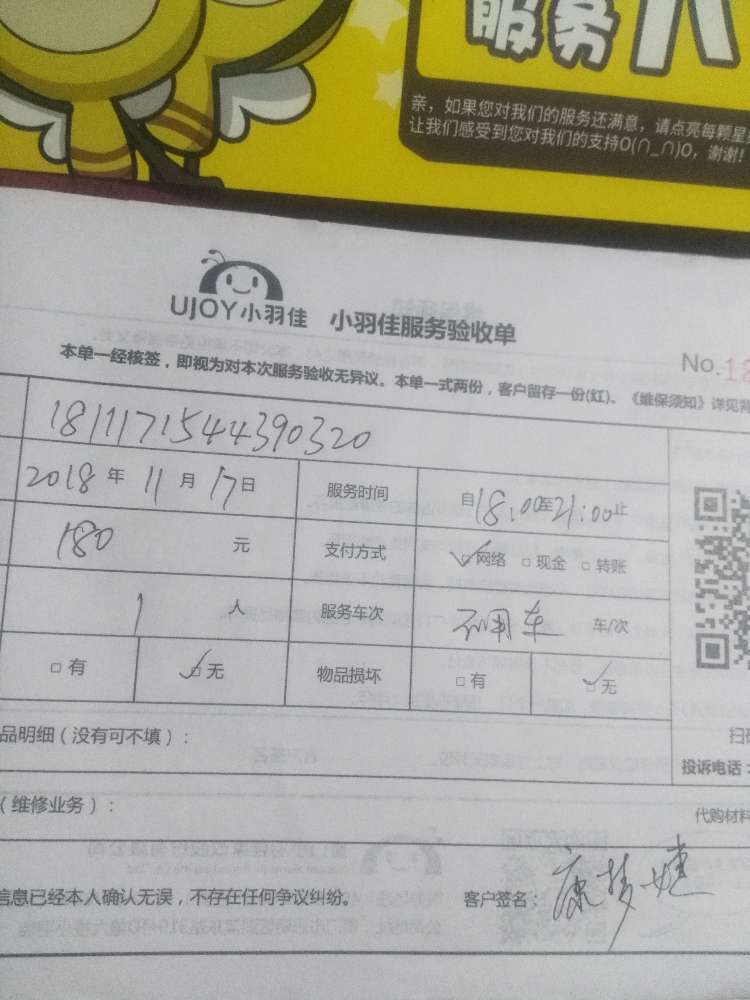 服务
亲，如果您对我们的服务还满意，请点亮每颗星
让我们感受到您对我们的支持O(∩_∩)O，谢谢！
UJOY小羽佳 小羽佳服务验收单
No.18
本单一经核签，即视为对本次服务验收无异议。本单一式两份，客户留存一份(红)。《维保须知》详见背
1811171544390320
2018年11月17日 服务时间 自18:00至21:00止
180 元 支付方式 ☑网络 □现金 □转账
1 人 服务车次 不用车 车/次
□有 ☑无 物品损坏 □有 ☑无
品明细（没有可不填）：
扫码
投诉电话：
（维修业务）：
代购材料
信息已经本人确认无误，不存在任何争议纠纷。 客户签名：康梦婕